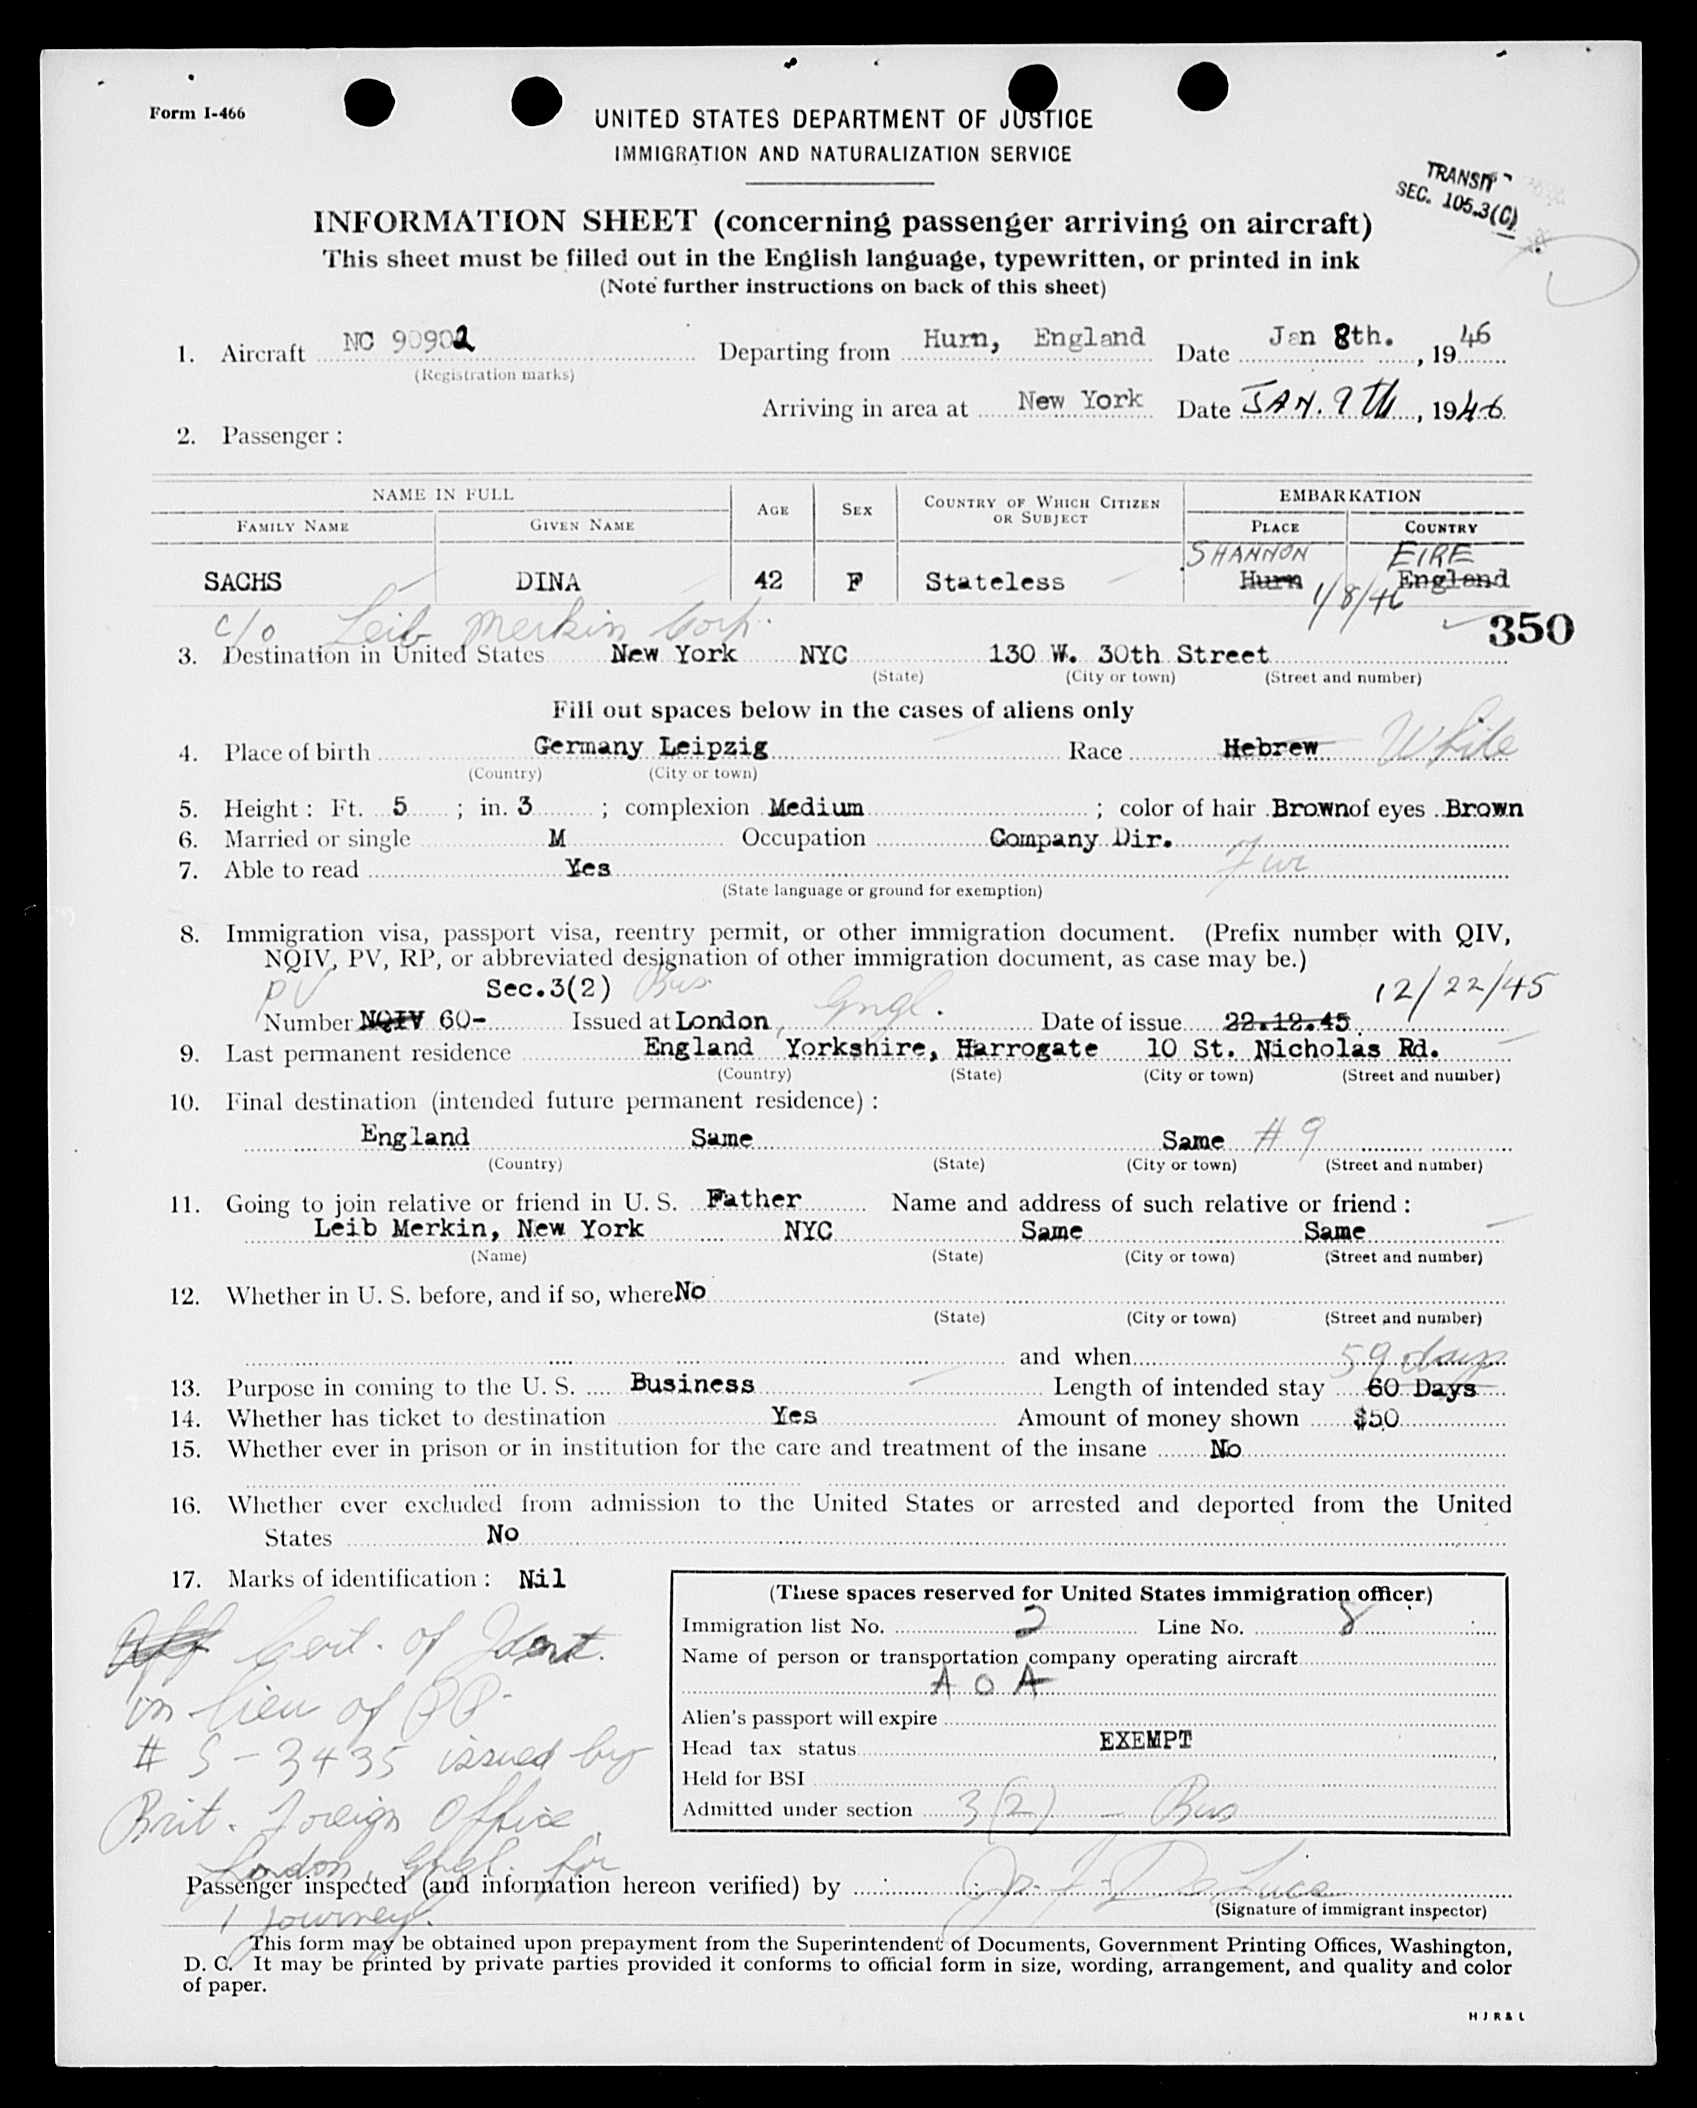 Form I-466
UNITED STATES DEPARTMENT OF JUSTICE
IMMIGRATION AND NATURALIZATION SERVICE
TRANSIT
SEC. 105.3(C)
INFORMATION SHEET (concerning passenger arriving on aircraft)
This sheet must be filled out in the English language, typewritten, or printed in ink
(Note further instructions on back of this sheet)
1. Aircraft NC 90902 Departing from Hurn, England Date Jan 8th. , 1946
(Registration marks)
Arriving in area at New York Date JAN. 9th , 1946
2. Passenger :
NAME IN FULL AGE SEX COUNTRY OF WHICH CITIZEN OR SUBJECT EMBARKATION
FAMILY NAME GIVEN NAME PLACE COUNTRY
SHANNON EIRE
SACHS DINA 42 F Stateless Hurn England
1/8/46
c/o Leib Merkin Corp.
350
3. Destination in United States New York NYC 130 W. 30th Street
(State) (City or town) (Street and number)
Fill out spaces below in the cases of aliens only
4. Place of birth Germany Leipzig Race Hebrew White
(Country) (City or town)
5. Height : Ft. 5 ; in. 3 ; complexion Medium ; color of hair Brown of eyes Brown
6. Married or single M Occupation Company Dir.
Fur
7. Able to read Yes
(State language or ground for exemption)
8. Immigration visa, passport visa, reentry permit, or other immigration document. (Prefix number with QIV,
NQIV, PV, RP, or abbreviated designation of other immigration document, as case may be.)
PV Sec.3(2) Bus. 12/22/45
Number NQIV 60- Issued at London, Engl. Date of issue 22.12.45
9. Last permanent residence England Yorkshire, Harrogate 10 St. Nicholas Rd.
(Country) (State) (City or town) (Street and number)
10. Final destination (intended future permanent residence) :
England Same Same # 9
(Country) (State) (City or town) (Street and number)
11. Going to join relative or friend in U. S. Father Name and address of such relative or friend :
Leib Merkin, New York NYC Same Same
(Name) (State) (City or town) (Street and number)
12. Whether in U. S. before, and if so, where No
(State) (City or town) (Street and number)
and when
59 days
13. Purpose in coming to the U. S. Business Length of intended stay 60 Days
14. Whether has ticket to destination Yes Amount of money shown $50
15. Whether ever in prison or in institution for the care and treatment of the insane No
16. Whether ever excluded from admission to the United States or arrested and deported from the United
States No
17. Marks of identification : Nil
(These spaces reserved for United States immigration officer)
Immigration list No. 2 Line No. 8
Name of person or transportation company operating aircraft
A O A
Alien's passport will expire
Head tax status EXEMPT
Held for BSI
Admitted under section 3(2) - Bus
Aff Cert. of Ident.
in lieu of PP.
# S-3435 issued by
Brit. Foreign Office
London, Engl. for
1 journey.
Passenger inspected (and information hereon verified) by Jos. F. De Luca
(Signature of immigrant inspector)
This form may be obtained upon prepayment from the Superintendent of Documents, Government Printing Offices, Washington,
D. C. It may be printed by private parties provided it conforms to official form in size, wording, arrangement, and quality and color
of paper.
H J R & L